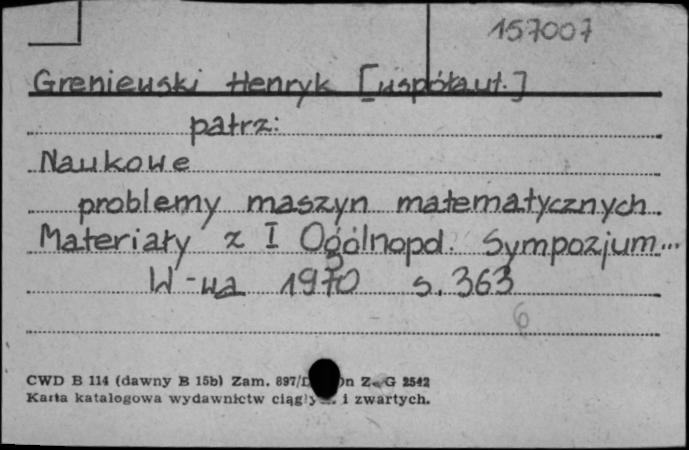 157007
Greniewski Henryk [współaut.]
patrz:
Naukowe
problemy maszyn matematycznych.
Materiały z I Ogólnopol. Sympozjum...
W-wa 1970 s. 363
6
CWD B 114 (dawny B 15b) Zam. 897/ Z-G 2542
Karta katalogowa wydawnictw i zwartych.